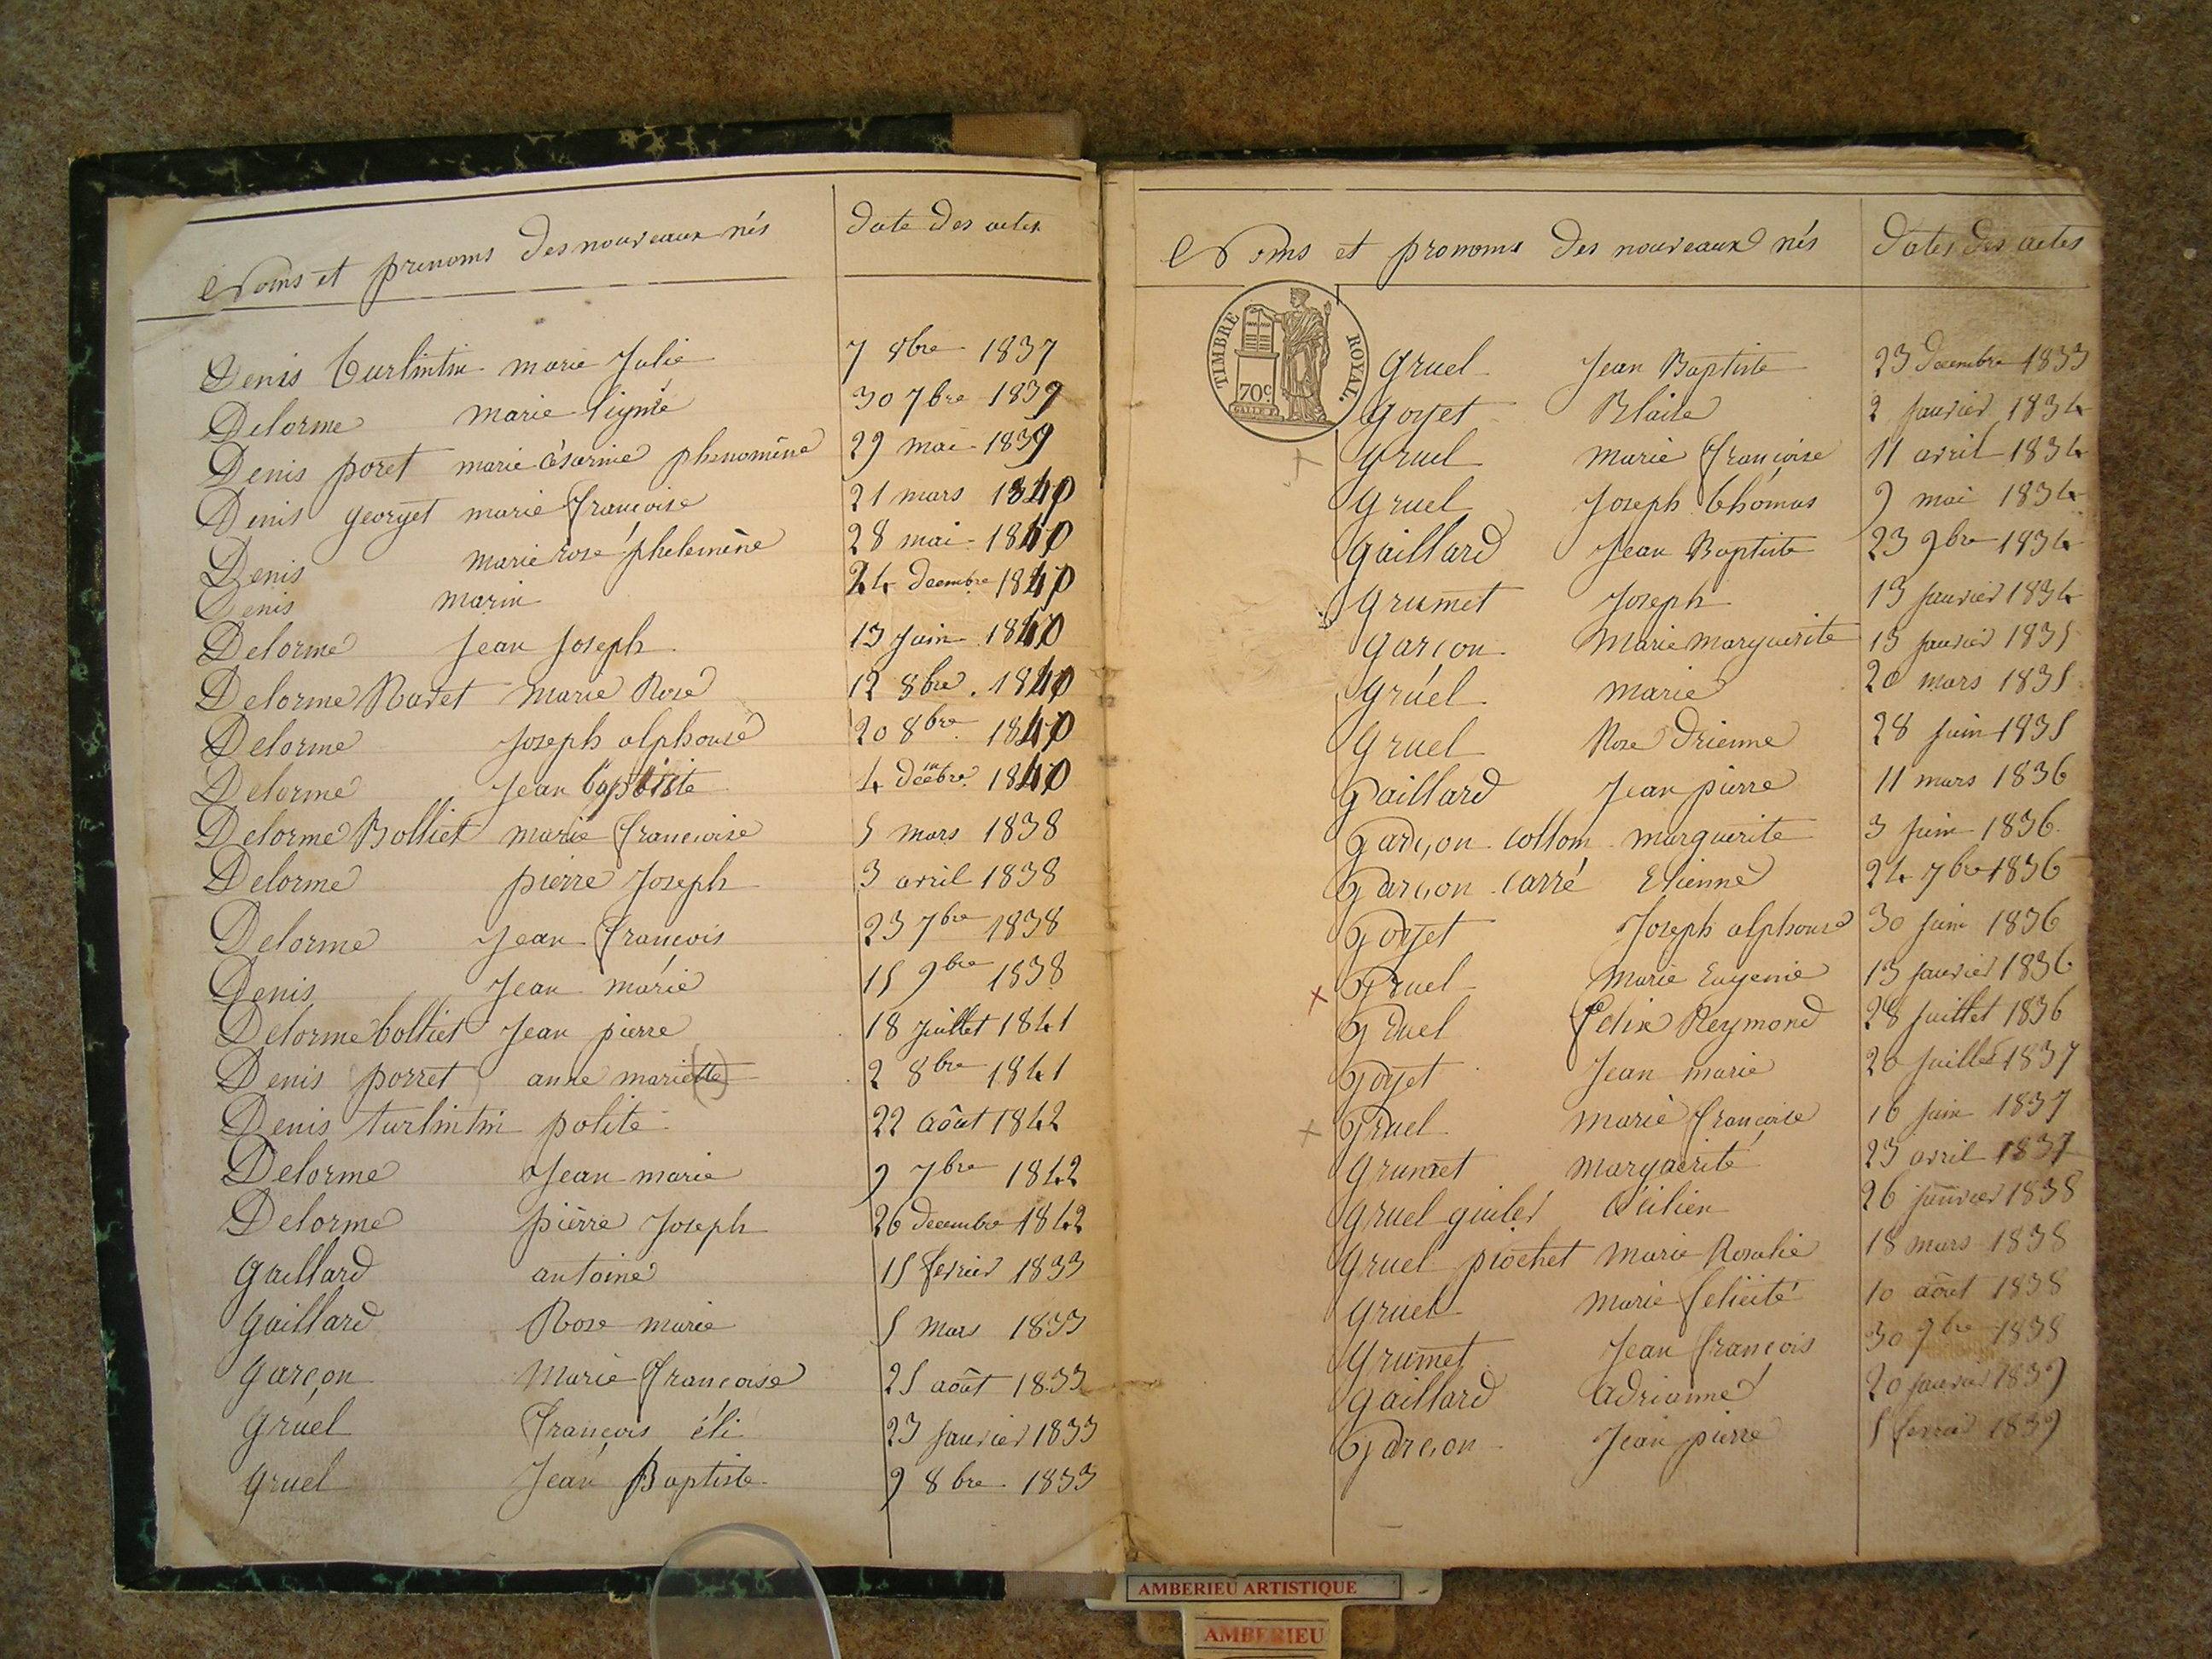 Noms et prenoms des nouveaux nés date des actes
Denis turlintin marie Julie 7 8bre 1837
Delorme marie 30 7bre 1839
Denis poret marie césarine phenomène 29 mai 1839
Denis georget marie françoise 21 mars 1840
Denis marie rose phelemène 28 mai 1840
Denis marin 24 decembre 1840
Delorme Jean Joseph 13 Juin 1840
Delorme Ravet marie Rose 12 8bre 1840
Delorme Joseph alphonse 20 8bre 1840
Delorme Jean baptiste 4 1840
Delorme Bolliet marie françoise 5 mars 1838
Delorme pierre Joseph 3 avril 1838
Delorme Jean françois 23 7bre 1838
Denis Jean marie 15 9bre 1838
Delorme bolliet Jean pierre 18 Juillet 1841
Denis porret anne mariette 2 8bre 1841
Denis turlintin polite 22 août 1842
Delorme Jean marie 9 7bre 1842
Delorme pierre Joseph 26 decembre 1842
Gaillard antoine 15 fevrier 1833
Gaillard Rose marie 5 Mars 1833
Garçon Marie françoise 25 août 1833
Gruel françois éli 23 Janvier 1833
Gruel Jean Baptiste 9 8bre 1833
Noms et pronoms des nouveaux nés Dates des actes
TIMBRE ROYAL
70c
Gruel Jean Baptiste 23 decembre 1833
Goyet Blaise 2 Janvier 1834
Gruel Marie françoise 11 avril 1834
Gruel Joseph thomas 9 mai 1834
Gaillard Jean Baptiste 23 9bre 1834
Grumet Joseph 13 Janvier 1834
Garçon Marie marguerite 13 Janvier 1835
Gruel marie 20 mars 1835
Gruel Rose Drienne 28 Juin 1835
Gaillard Jean pierre 11 mars 1836
Garçon Collom marguerite 3 Juin 1836
Garçon carré Etienne 24 7bre 1836
Goyet Joseph alphonse 30 Juin 1836
x Gruel Marie Eugenie 13 Janvier 1836
Gruel Felix Reymond 28 Juillet 1836
Goyet Jean marie 20 Juillet 1837
x Gruel Marie françoise 16 Juin 1837
Grumet marguerite 23 avril 1837
Gruel 26 Janvier 1838
Gruel piochet Marie Rosalie 18 mars 1838
Gruel Marie felicité 10 août 1838
Grumet Jean françois 30 9bre 1838
Gaillard adrianne 20 Janvier 1839
Garçon Jean pierre 5 fevrier 1839
AMBERIEU ARTISTIQUE
AMBERIEU